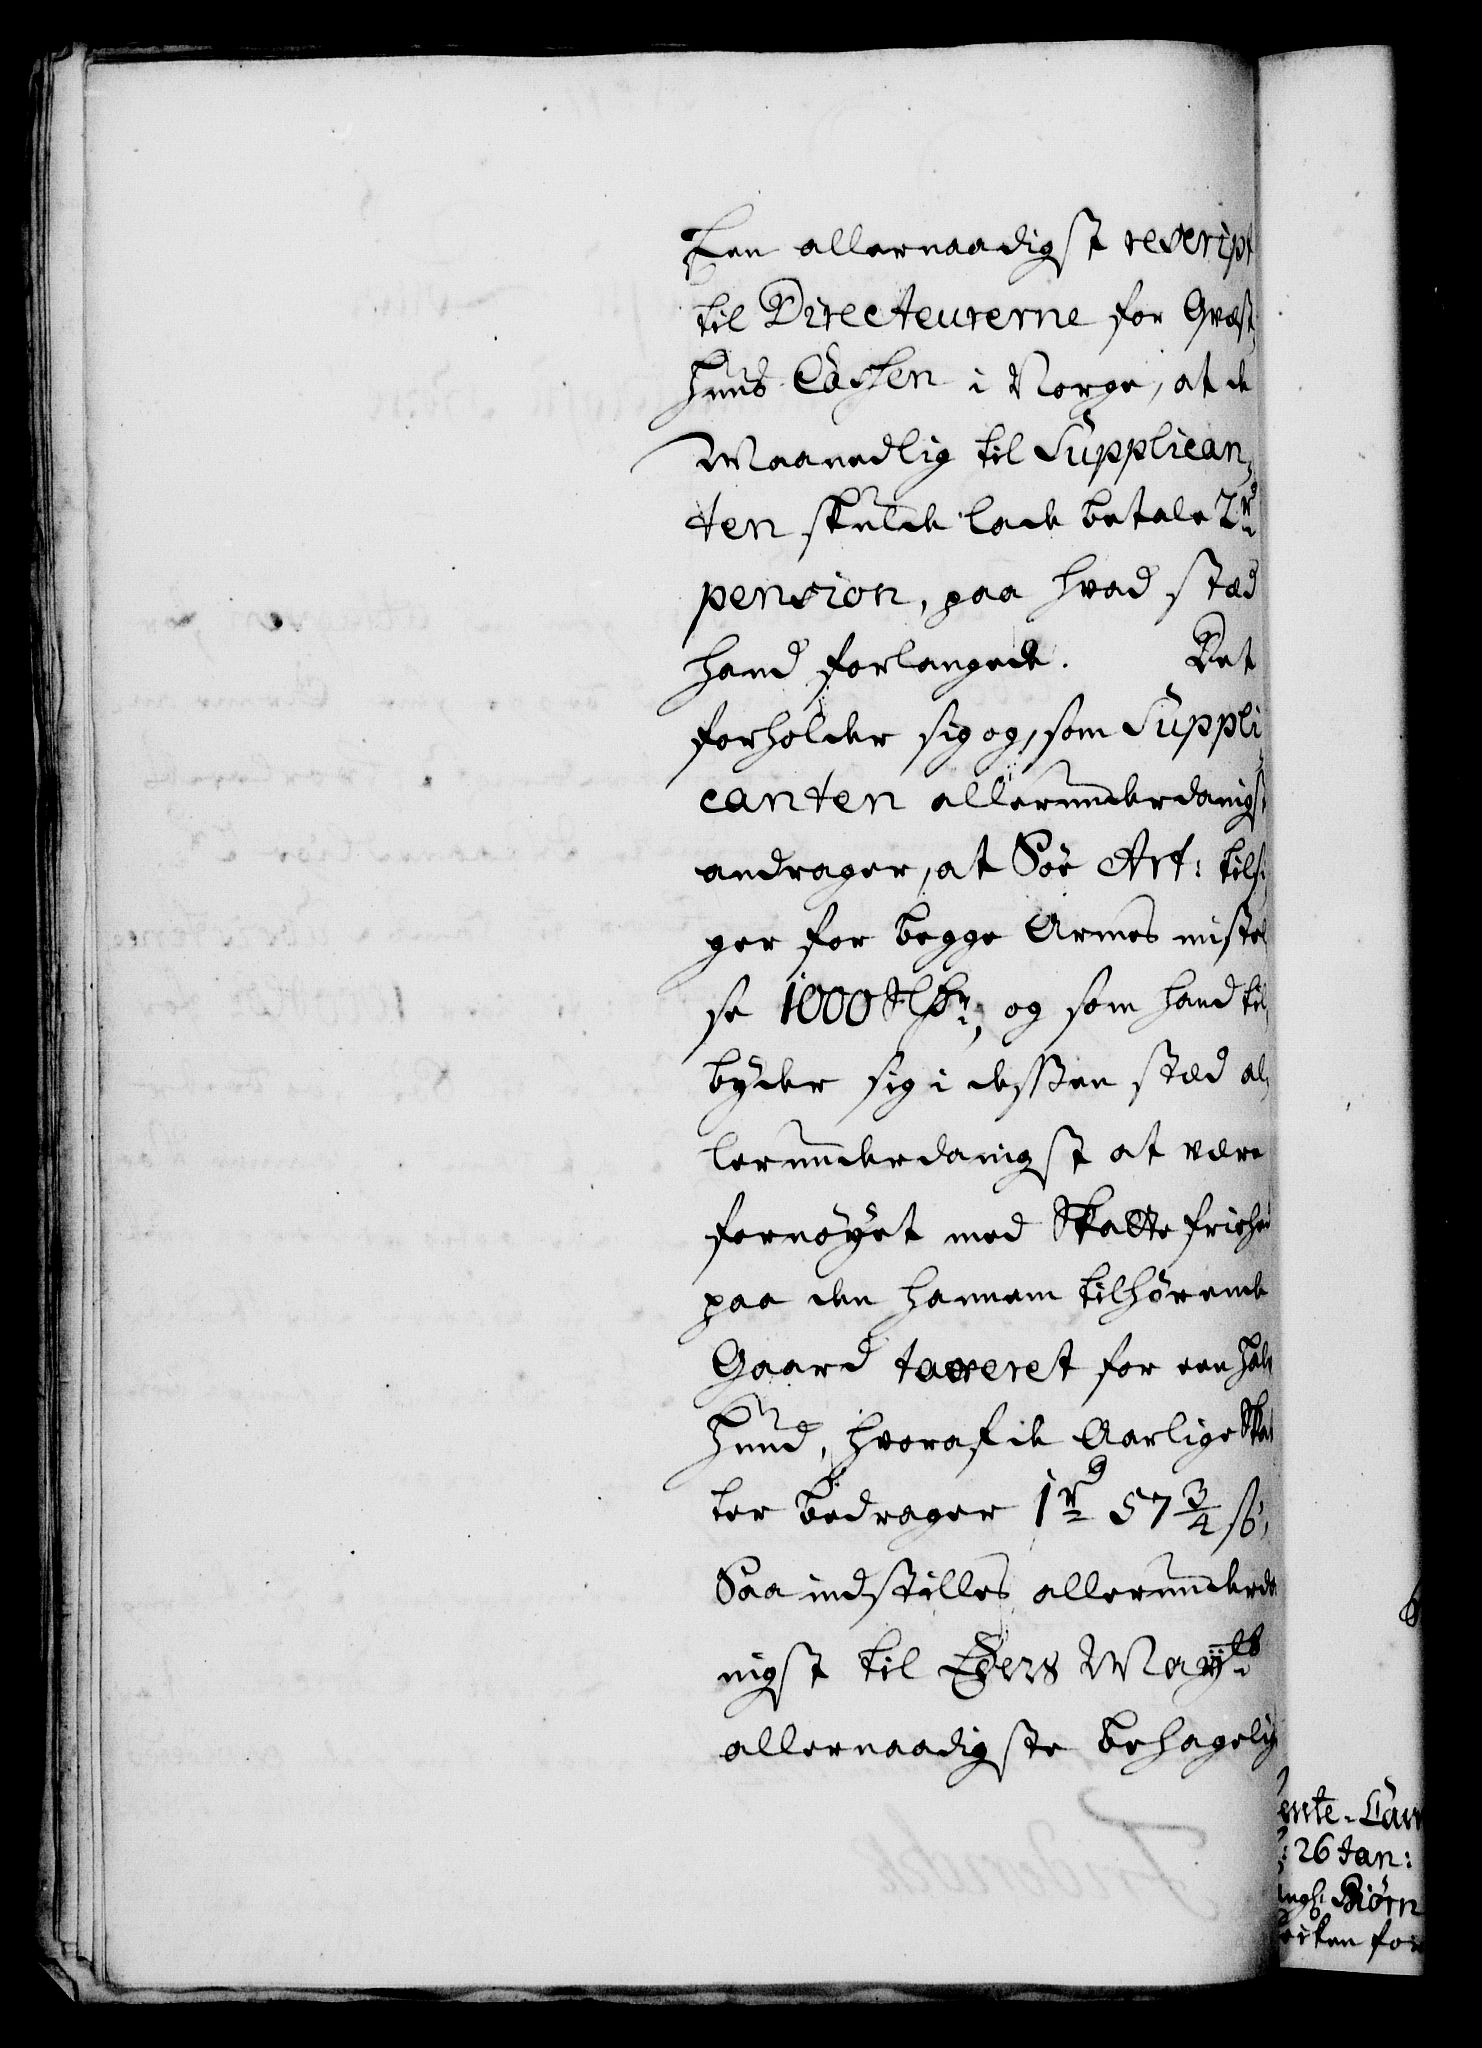 Een allernaadigst rescript
til Directeurerne for Qvæst-
huus Cassen i Norge, at de
Maanedlig til Supplican-
ten skulde lade betale 2 rd
pension, paa hvad stæd
hand forlangede. Det
forholder sig og, som Suppli-
canten allerunderdanigst
andrager, at Søe Art: tilsi-
ger for begge Armes mistel-
se 1000 Rdr, og som hand til-
byder sig i dessen stæd al-
lerunderdanigst at være
fornøyet med Skatte friehed
paa den hannem tilhørende
Gaard taxeret for een half
Huud, hvoraf de Aarlige Skat-
ter bedrager 1 rd 57 3/4 s,
Saa indstilles allerunderda-
nigst til Eders Mayts
allernaadigste behagelig
ente-Cam
: 26 Jan:
Biørn
for